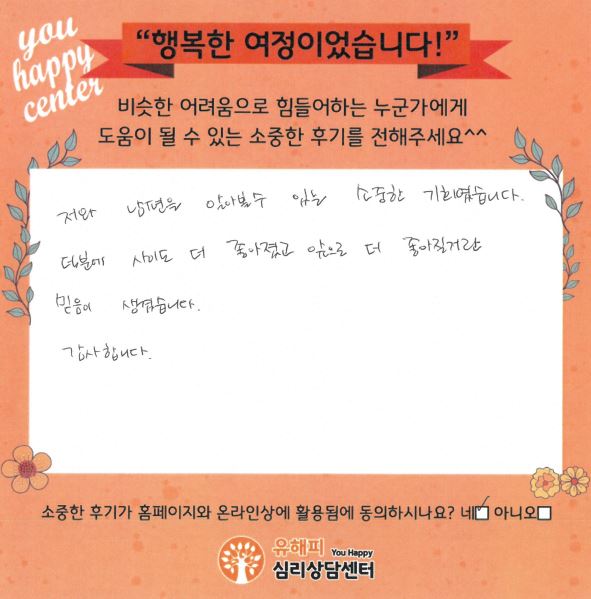 you
happy
center
“행복한 여정이었습니다!”
비슷한 어려움으로 힘들어하는 누군가에게
도움이 될 수 있는 소중한 후기를 전해주세요^^
저와 남편을 알아볼수 있는 소중한 기회였습니다.
덕분에 사이도 더 좋아졌고 앞으로 더 좋아질거란
믿음이 생겼습니다.
감사합니다.
소중한 후기가 홈페이지와 온라인상에 활용됨에 동의하시나요? 네☑ 아니오☐
유해피 You Happy
심리상담센터